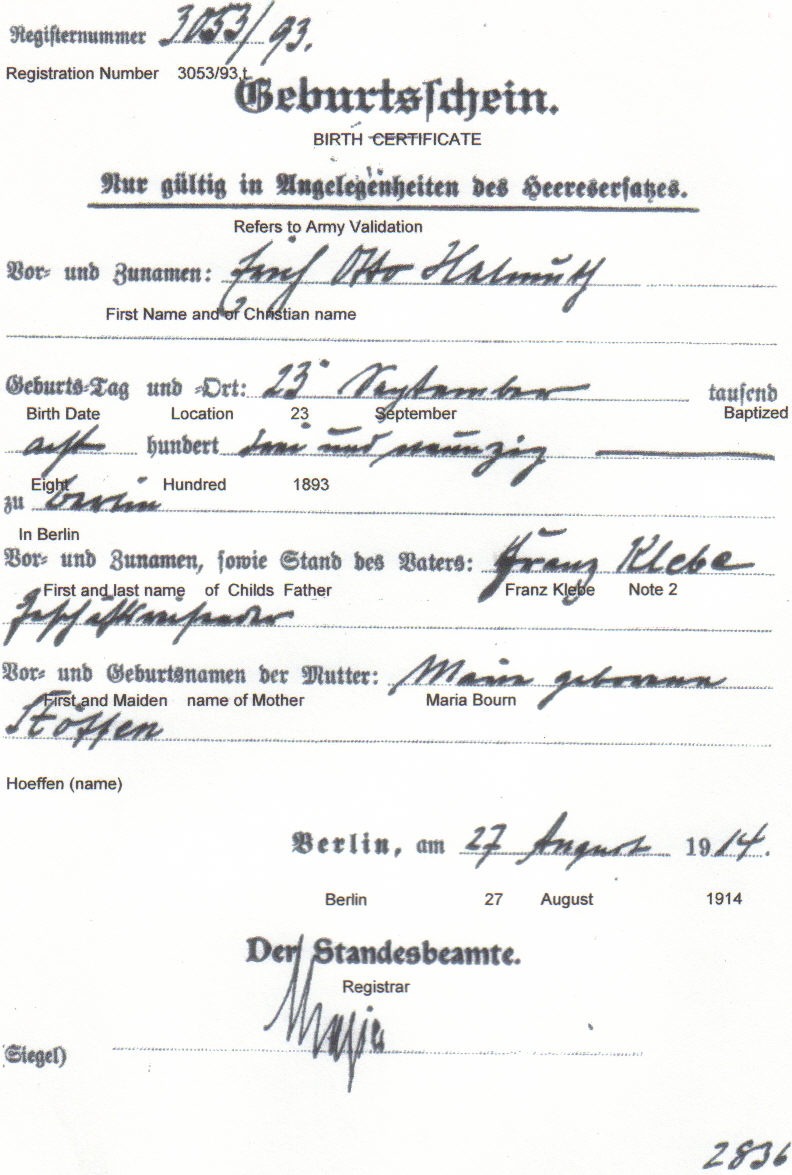 Registernummer 3053/93.
Registration Number 3053/93,t.
Geburtsschein.
BIRTH CERTIFICATE
Nur gültig in Angelegenheiten des Heeresersatzes.
Refers to Army Validation
Vor- und Zunamen: Erich Otto Helmuth
First Name and or Christian name
Geburts-Tag und -Ort: 23. September tausend
Birth Date Location 23 September Baptized
acht hundert drei und neunzig
Eight Hundred 1893
zu Berlin
In Berlin
Vor- und Zunamen, sowie Stand des Vaters: Franz Klebe
First and last name of Childs Father Franz Klebe Note 2
Geschäftsreisender
Vor- und Geburtsnamen der Mutter: Marie geborene
First and Maiden name of Mother Maria Bourn
Hoeffen (name)
Berlin, am 27 August 1914.
Berlin 27 August 1914
Der Standesbeamte.
Registrar
(Siegel)
2836